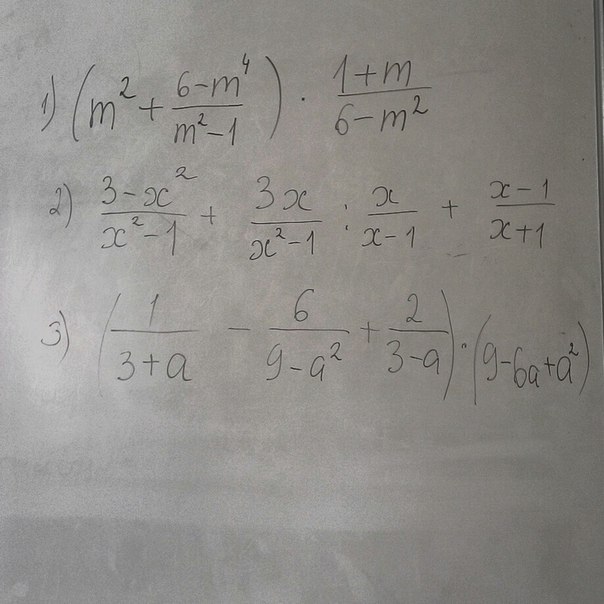 1) (m² + (6-m⁴)/(m²-1)) · (1+m)/(6-m²)
2) (3-x²)/(x²-1) + 3x/(x²-1) : x/(x-1) + (x-1)/(x+1)
3) (1/(3+a) - 6/(9-a²) + 2/(3-a)) · (9-6a+a²)